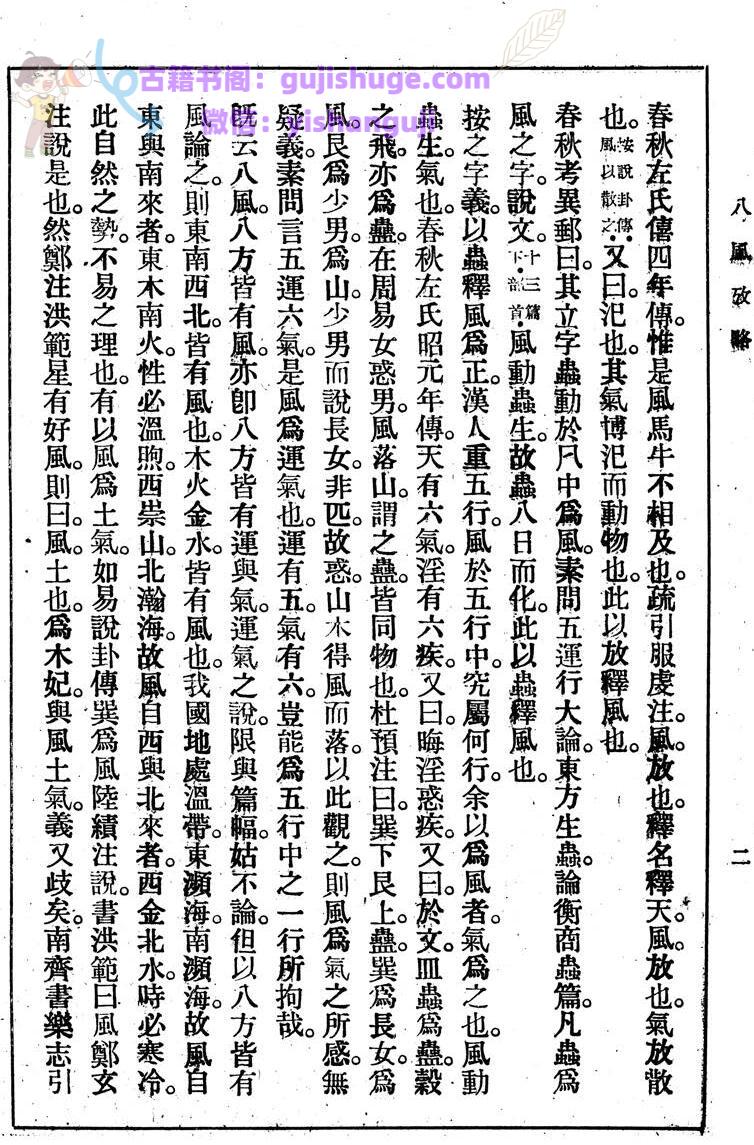 古籍书阁：gujishuge.com
微信：yishanguji
八風攷略
二
春秋左氏僖四年傳。惟是風馬牛不相及也。疏引服虔注。風。放也。釋名釋天。風。放也。氣放散
也。按說卦傳。風以散之。又曰氾也。其氣博氾而動物也。此以放釋風也。
春秋考異郵曰。其立字蟲動於凡中爲風。素問五運行大論。東方生蟲。論衡商蟲篇。凡蟲爲
風之字。說文十三篇下部首。風動蟲生。故蟲八日而化。此以蟲釋風也。
按之字義。以蟲釋風爲正。漢人重五行。風於五行中。究屬何行。余以爲風者。氣爲之也。風動
蟲生。氣也。春秋左氏昭元年傳。天有六氣。淫有六疾。又曰。晦淫惑疾。又曰。於文皿蟲爲蠱。穀
之飛亦爲蠱。在周易女惑男。風落山。謂之蠱。皆同物也。杜預注曰。巽下艮上蠱。巽爲長女。爲
風。艮爲少男。爲山。少男而說長女。非匹。故惑。山木得風而落。以此觀之。則風爲氣之所感。無
疑義。素問言五運六氣。是風爲運氣也。運有五。氣有六。豈能爲五行中之一行所拘哉。
旣云八風。八方皆有風。亦卽八方皆有運與氣。運氣之說。限與篇幅。姑不論。但以八方皆有
風論之。則東南西北。皆有風也。木火金水。皆有風也。我國地處溫帶。東瀕海。南瀕海。故風自
東與南來者。東木南火。性必溫煦。西崇山。北瀚海。故風自西與北來者。西金北水。時必寒冷。
此自然之勢。不易之理也。有以風爲土氣。如易說卦傳巽爲風。陸績注說。書洪範曰風。鄭玄
注說是也。然鄭注洪範星有好風。則曰。風。土也。爲木妃。與風土氣義又歧矣。南齊書樂志引